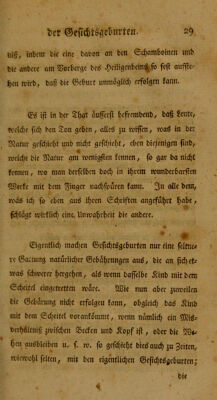 der Gesichtsgeburten. 29
niß, indem die eine davon an den Schambeinen und
die andere am Vorberge des Heiligenbeins so fest aufste-
hen wird, daß die Geburt unmöglich erfolgen kann.
Es ist in der That äusserst befremdend, daß Leute,
welche sich den Ton geben, alles zu wissen, was in der
Natur geschieht und nicht geschieht, eben diejenigen sind,
welche die Natur am wenigsten kennen, so gar da nicht
kennen, wo man derselben doch in ihrem wunderbarsten
Werke mit dem Finger nachspüren kann. In alle dem,
was ich so eben aus ihren Schriften angeführt habe,
schlägt wirklich eine Unwahrheit die andere.
Eigentlich machen Gesichtsgeburten nur eine seltne-
re Gattung natürlicher Gebährungen aus, die an sich et-
was schwerer hergehen, als wenn dasselbe Kind mit dem
Scheitel eingetretten wäre. Wie nun aber zuweilen
die Gebärung nicht erfolgen kann, obgleich das Kind
mit dem Scheitel vorankömmt, wenn nämlich ein Mis-
verhältniß zwischen Becken und Kopf ist, oder die We-
hen ausbleiben u. s. w. so geschieht dies auch zu Zeiten,
wiewohl selten, mit den eigentlichen Gesichtsgeburten;
die